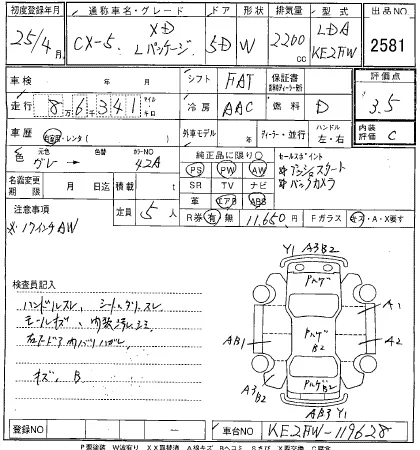 初度登録年月 通称車名・グレード ドア 形状 排気量 型式 出品NO
25年/4月 CX-5. XD Lパッケージ. 5D W 2200cc LDA KE2AW 2581
車検 年 月 シフト FAT 保証書 評価点
走行 8万6千341 マイル キロ 冷房 AAC 燃料 D 3.5
車歴 自家用・レンタ( ) 外車モデル 年 ディーラー・並行 ハンドル 左・右 内装評価 C
色 元色 グレー 色替 カラーNO 42A 純正品に限り○ セールスポイント
PS PW AW
*プッシュスタート
名義変更期限 月 日迄 積載 t SR TV ナビ
*バックカメラ
革 エアB ABS
注意事項 定員 5人 R券 有 無 11,650円 Fガラス キズ・A・X要す
※17インチAW
検査員記入
ハンドルスレ、シートヨゴレスレ
モールキズ、内装汚レシミ
キズ、B
Y1 A3 B2
ルーフ
A1
AB1
B2
A2
A3
B2
AB3 Y1
登録NO 車台NO KE2AW-119628
P要塗装 W波有り XX取替済 A線キズ Bヘコミ Sさび X要交換 C腐食